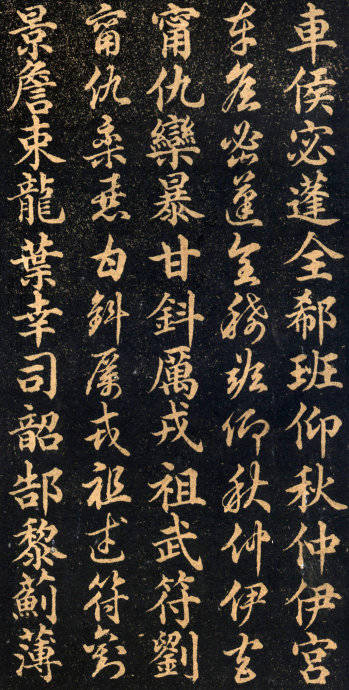 車侯宓蓬全郗班仰秋仲伊宮
車侯宓蓬全郗班仰秋仲伊宮
甯仇欒暴甘鈄厲戎祖武符劉
甯仇欒暴甘鈄厲戎祖武符劉
景詹束龍葉幸司韶郜黎薊薄